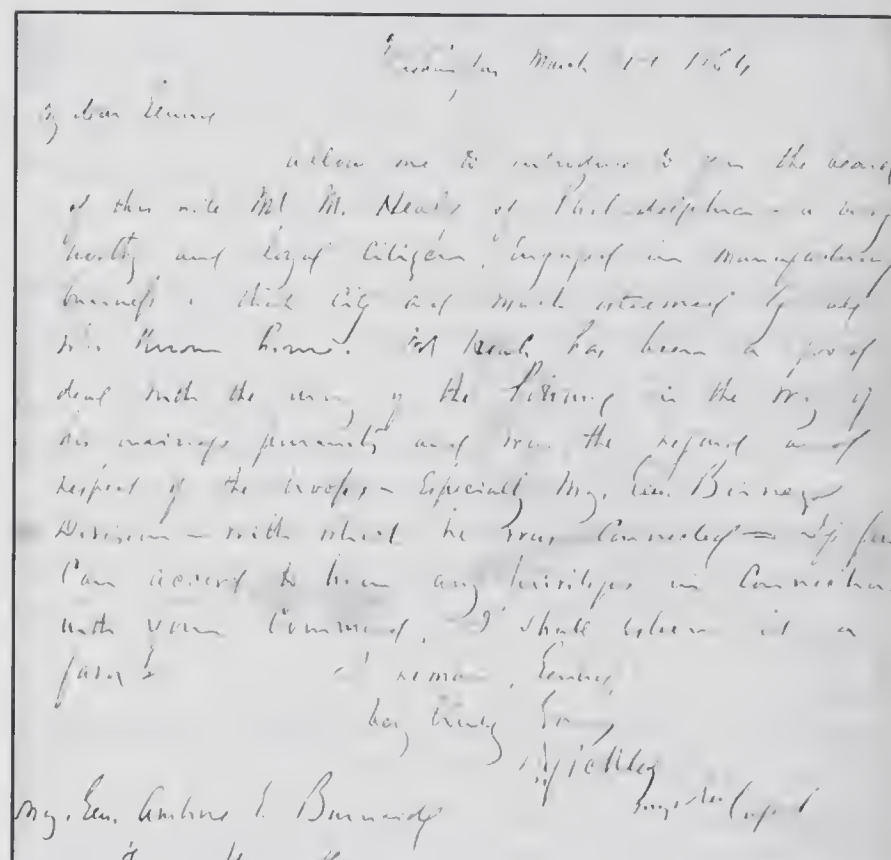 March 11 1864
My dear General
allow me to introduce to you the bearer
of this note Mr M. Neal of Philadelphia - a very
worthy and loyal Citizen, engaged in manufacturing
business in that City and much esteemed by all
Mr Neal has been a good
deal with the army of the Potomac in the way of
his business pursuits and won the regard and
respect of the troops - Especially Maj. Gen. Birney
Division - with which he was Connected = If you
Can accord to him any privileges in Connection
with your Command, I shall esteem it a
favor
I remain, General,
Very truly Yours,
D Sickles
Maj. Gen. Ambrose E. Burnside